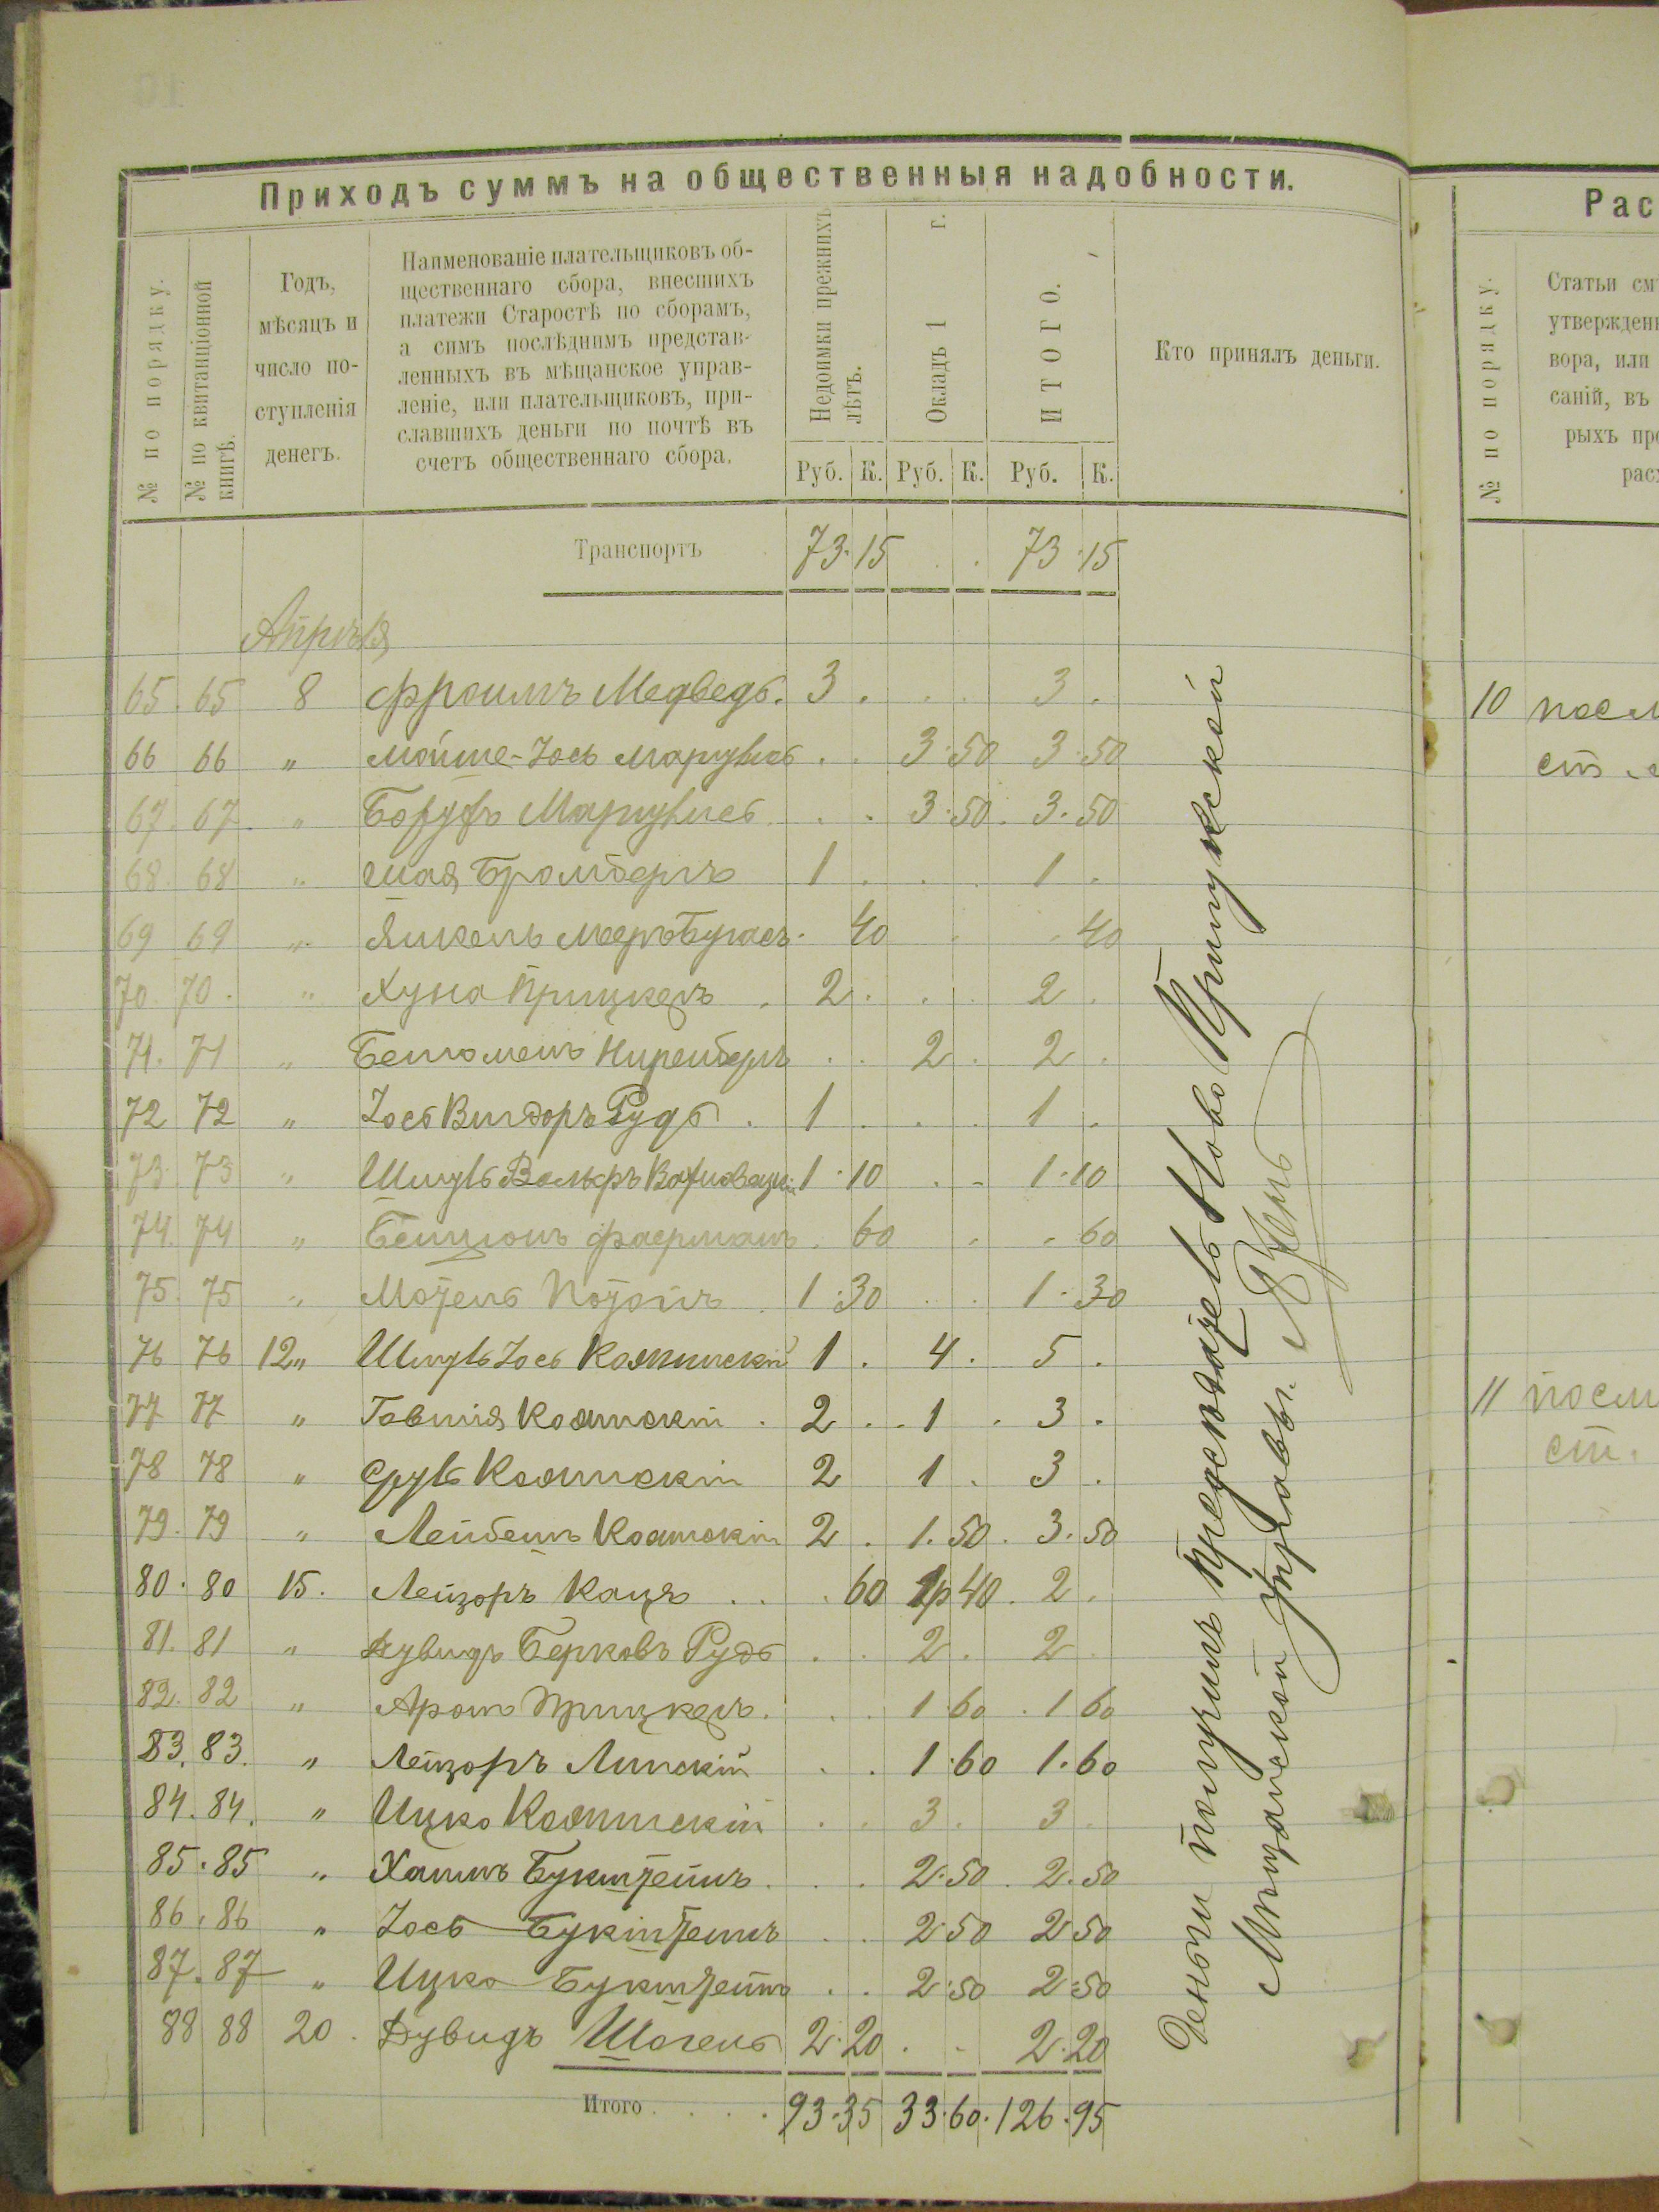 Приходъ суммъ на общественныя надобности.
№ по порядку.
№ по квитанціонной книгѣ.
Годъ,
мѣсяцъ и
число по-
ступленія
денегъ.
Наименованіе плательщиковъ об-
щественнаго сбора, внесшихъ
платежи Старостѣ по сборамъ,
а симъ послѣднимъ представ-
ленныхъ въ мѣщанское управ-
леніе, или плательщиковъ, при-
славшихъ деньги по почтѣ въ
счетъ общественнаго сбора.
Недоимки прежнихъ
лѣтъ.
Окладъ 1 г.
ИТОГО.
Кто принялъ деньги.
Руб. К. Руб. К. Руб. К.
Транспортъ 73 15 . . 73 15
Апрѣля
65. 65 8 Фроимъ Медведь. 3 . . . 3 .
66 66 " Мойше-Іось . . 3 50 3 50
67. 67. " Борухъ . . 3 50. 3. 50
68. 68 " Шая Бромбергъ 1 . . . 1 .
69 69 " Янкель 40 . . 40
70. 70. " Хуна Прицкеръ . 2 . . . 2 .
71. 71 " Бенюменъ Ниренбергъ . . 2 . 2 .
72 72 " Іось Вигдоръ Рудь . 1 . . . 1 .
73. 73 " Шмуль Вольфъ 1 10 . . 1 10
74. 74 " Бенціонъ Фаерманъ . 60 . . 60
75. 75 " Мотель Потокъ . 1 30 . . 1 30
76 76 12 " Шмуль Іось Каминскій 1 . 4 . 5 .
77 77 " Говшія Каминскій . 2 . . 1 . 3 .
78 78 " Сруль Каминскій 2 1 . 3 .
79. 79 " Лейбешъ Каминскій 2 . 1. 50. 3. 50
80. 80 15. Лейзоръ Кацъ . . . 60 1р 40. 2 .
81. 81 " Дувидъ Берковъ Рудь . . 2 . 2 .
82. 82 " Аронъ Прицкеръ. . . 1 60 . 1 60
83. 83. " Лейзоръ Липскій . . 1 60 1. 60
84. 84. " Ицко Каминскій . . 3 . 3 .
85. 85 " Хаимъ Букштейнъ . . . 2. 50 . 2. 50
86. 86 " Іось Букштейнъ . . 2 50 2 50
87. 87 " Ицко Букштейнъ . . 2 50 2 50
88 88 20 . Дувидъ Шогель 2. 20 . . 2. 20
Итого . . . . 93. 35 33. 60. 126. 95
Деньги получилъ предсѣдатель Ново Прилукской
Мѣщанской управы.
Рас
№ по порядку.
Статьи
вора, или
саній, въ
рыхъ
10
11
ст.